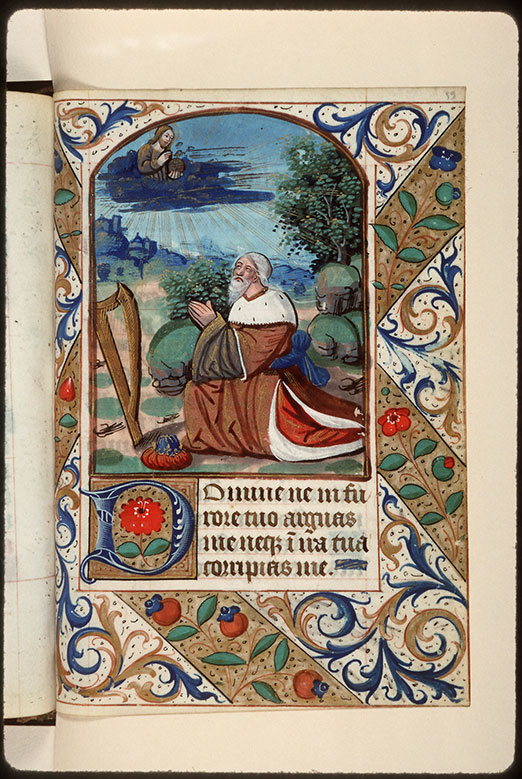 Domine ne in fu
rore tuo arguas
me neqꝫ ī ira tua
corripias me.